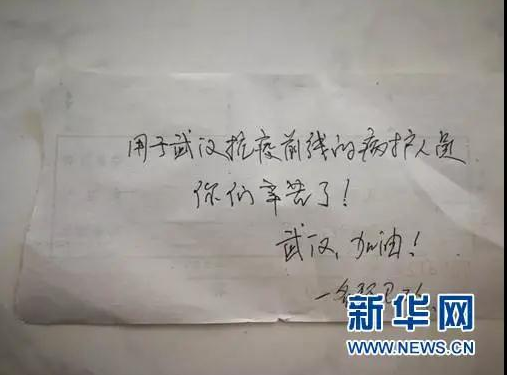 用于武汉抗疫前线的病护人员
你们辛苦了！
武汉，加油！
一名环卫工
新华网
WWW.NEWS.CN